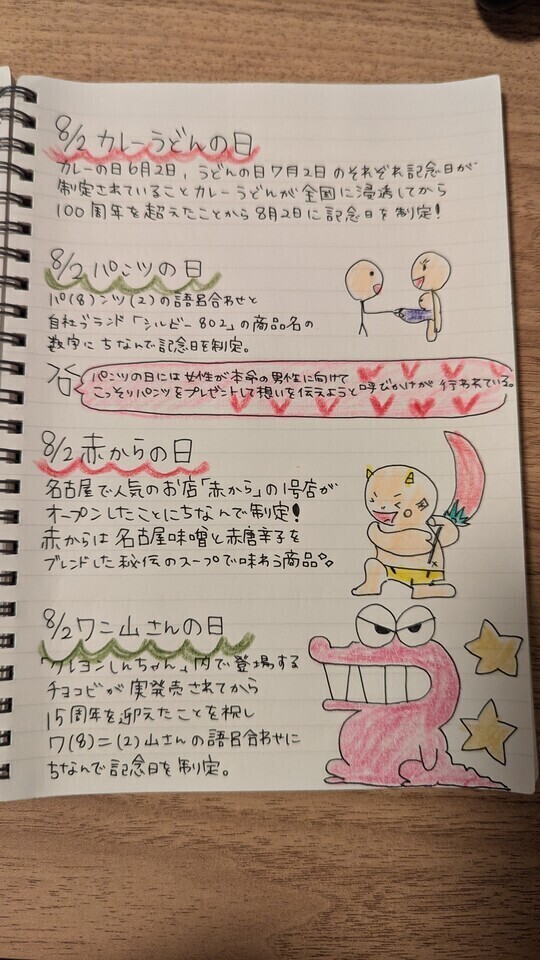 8/2 カレーうどんの日
カレーの日6月2日、うどんの日7月2日のそれぞれ記念日が
制定されていることカレーうどんが全国に浸透してから
100周年を超えたことから8月2日に記念日を制定!
8/2 パンツの日
パ(8)ンツ(2)の語呂合わせと
自社ブランド「シルビー802」の商品名の
数字にちなんで記念日を制定。
パンツの日には女性が本命の男性に向けて
こっそりパンツをプレゼントして想いを伝えようと呼びかけが行われている。
8/2 赤からの日
名古屋で人気のお店「赤から」の1号店が
オープンしたことにちなんで制定!
赤からは名古屋味噌と赤唐辛子を
ブレンドした秘伝のスープで味わう商品
8/2 ワニ山さんの日
「クレヨンしんちゃん」内で登場する
チョコビが実発売されてから
15周年を迎えたことを祝し
ワ(8)ニ(2)山さんの語呂合わせに
ちなんで記念日を制定。